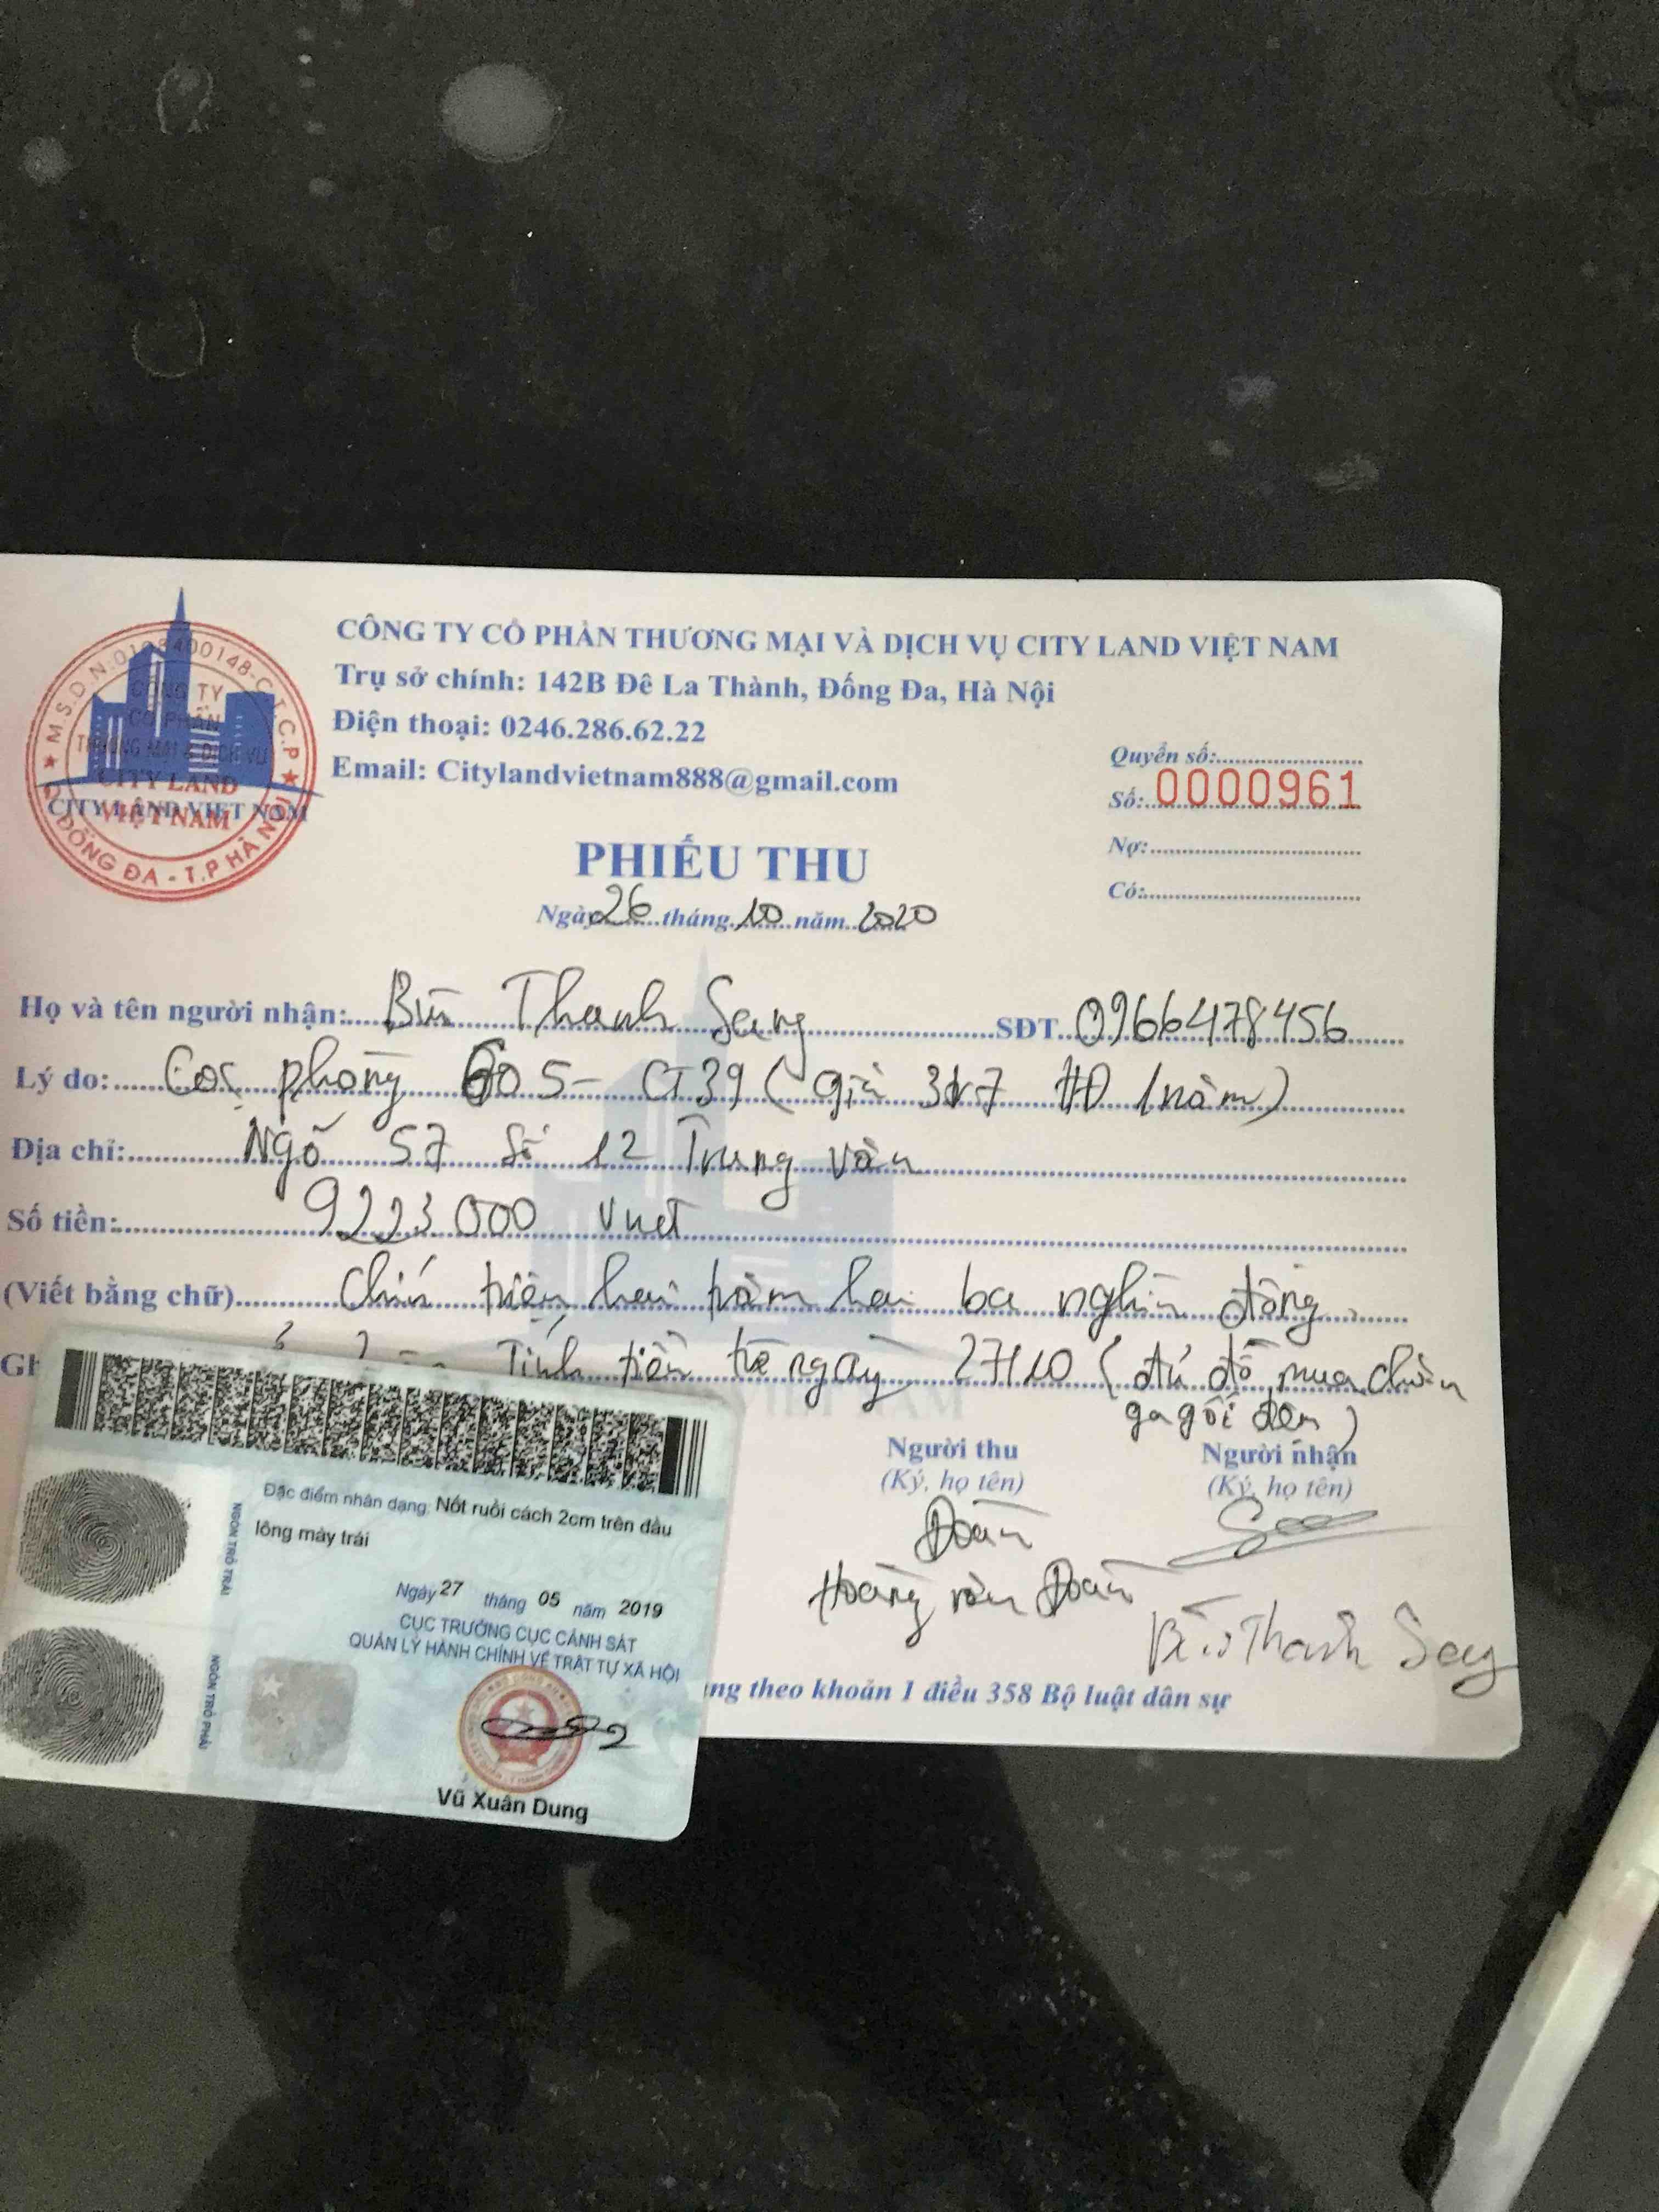 CÔNG TY CỔ PHẦN THƯƠNG MẠI VÀ DỊCH VỤ CITY LAND VIỆT NAM
Trụ sở chính: 142B Đê La Thành, Đống Đa, Hà Nội
Điện thoại: 0246.286.62.22
Email: Citylandvietnam888@gmail.com
M.S.D.N:0108400148-C.T.C.P
CÔNG TY
CỔ PHẦN
THƯƠNG MẠI & DỊCH VỤ
CITY LAND
VIỆT NAM
CITY LAND VIET NAM
Q. ĐỐNG ĐA - T.P HÀ NỘI
Quyển số:
Số: 0000961
Nợ:
Có:
PHIẾU THU
Ngày 26 tháng 10 năm 2020
Họ và tên người nhận: Bùi Thanh Sang SĐT 0966478456
Lý do: Cọc phòng 605 - CT39 (giá /năm)
Địa chỉ: Ngõ 57 Số 12 Trung Văn
Số tiền: 9223.000 vnđ
(Viết bằng chữ) Chín triệu hai trăm hai ba nghìn đồng
Gh Tính tiền từ ngày 27/10 (đủ đồ, mua chăn
ga gối đệm)
Người thu
(Ký, họ tên)
Đoàn
Hoàng Văn Đoàn
Người nhận
(Ký, họ tên)
Bùi Thanh Sang
ng theo khoản 1 điều 358 Bộ luật dân sự
Đặc điểm nhân dạng: Nốt ruồi cách 2cm trên đầu
lông mày trái
NGÓN TRỎ TRÁI
NGÓN TRỎ PHẢI
Ngày 27 tháng 05 năm 2019
CỤC TRƯỞNG CỤC CẢNH SÁT
QUẢN LÝ HÀNH CHÍNH VỀ TRẬT TỰ XÃ HỘI
Vũ Xuân Dung